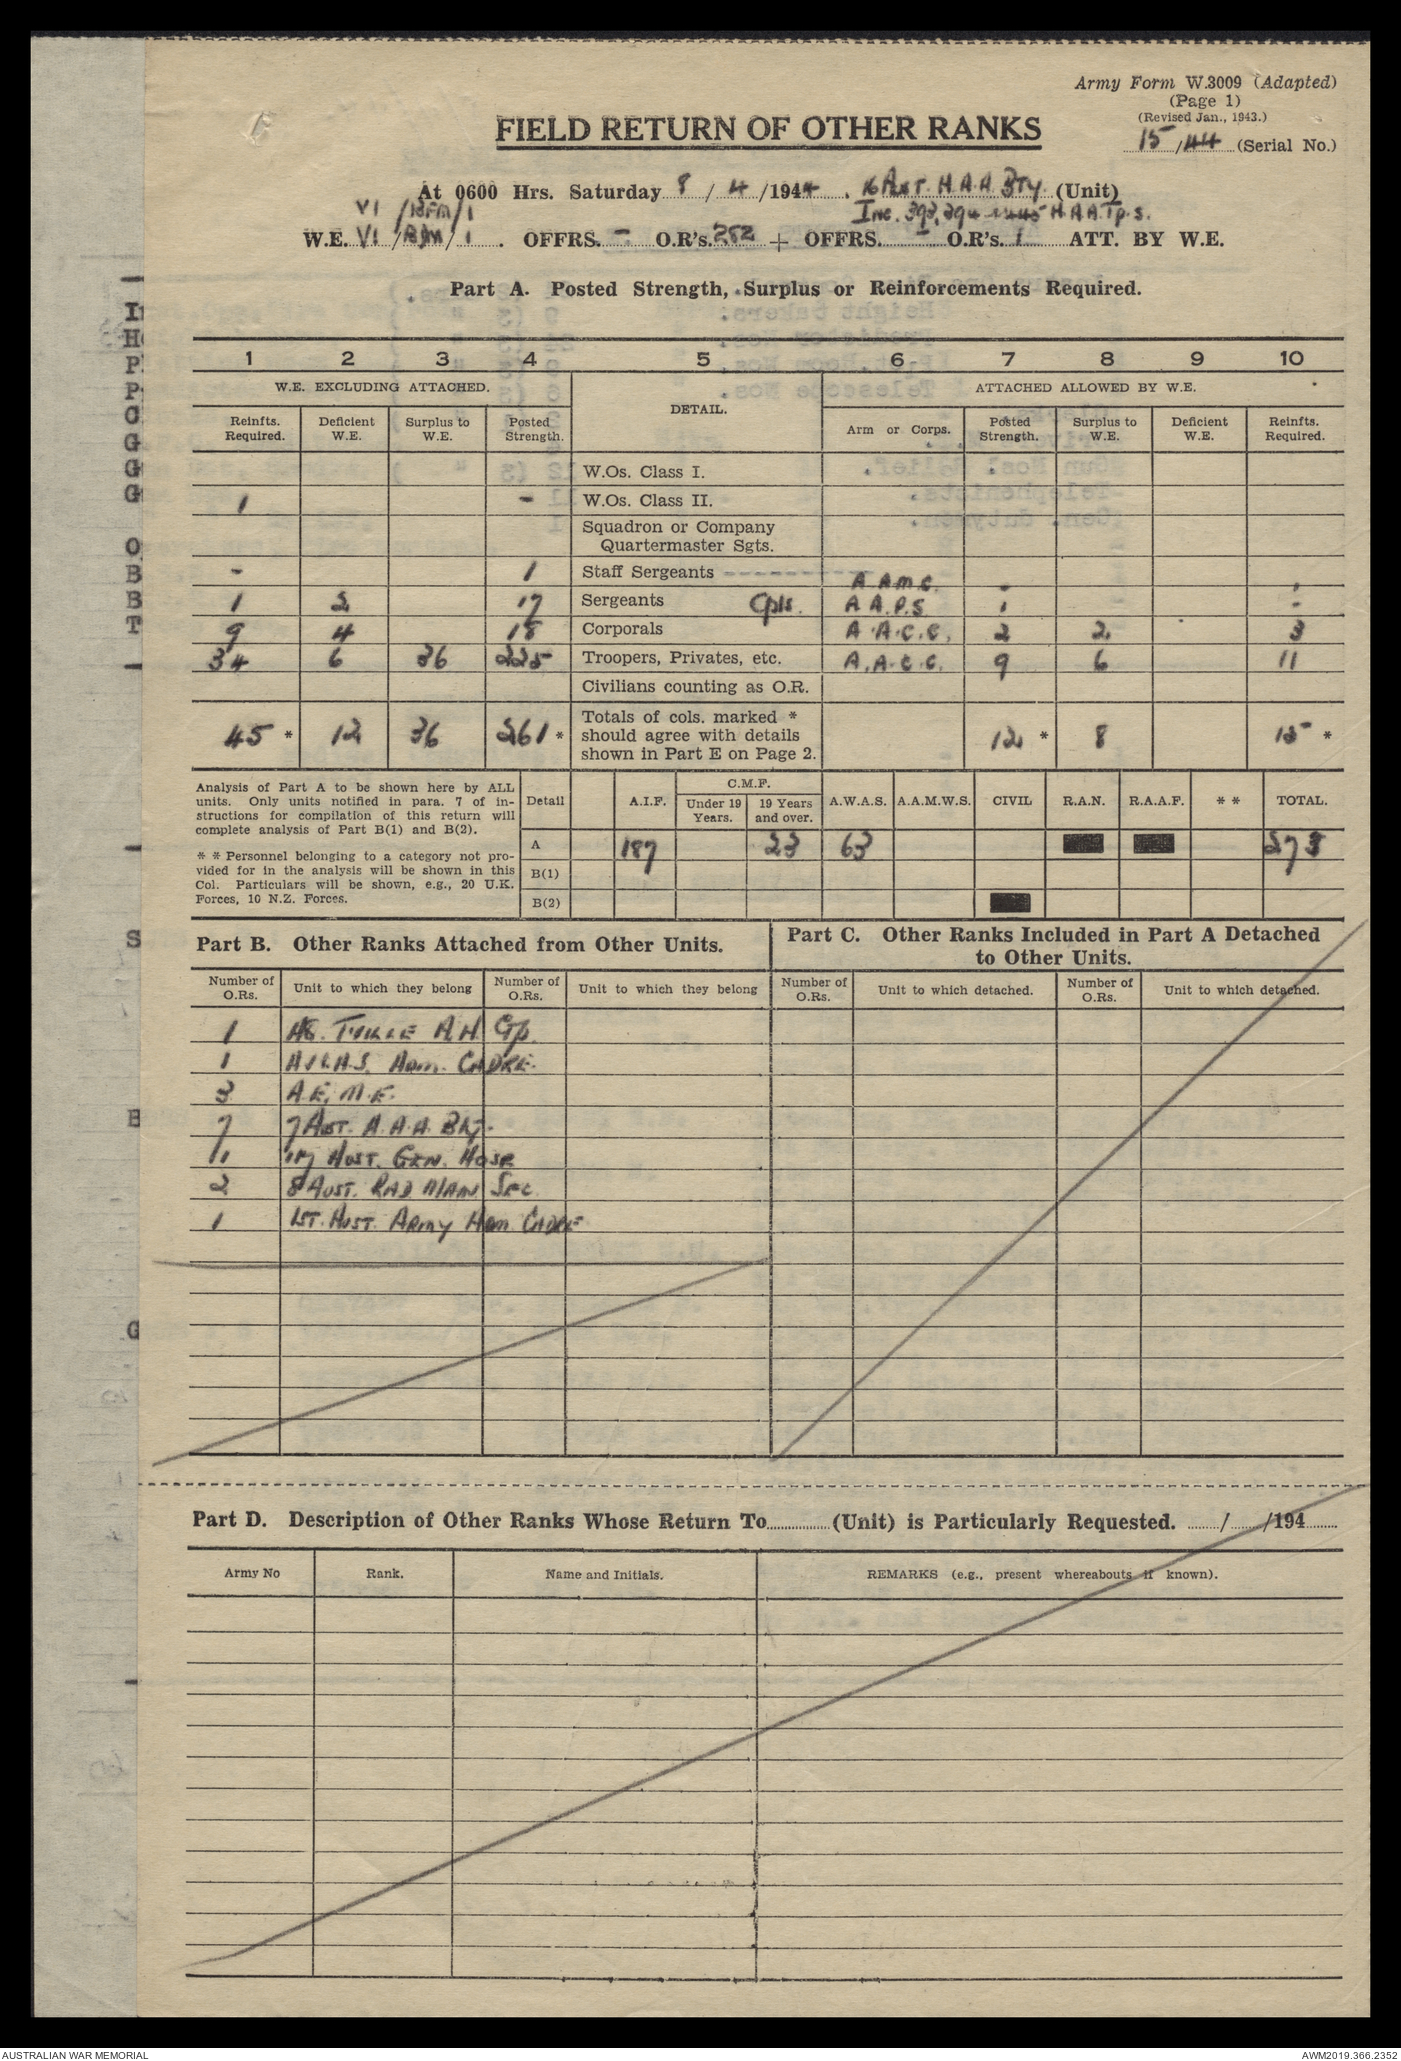 Army Form W.3009 (Adapted)
(Page 1)
(Revised Jan., 1943.)
15/44 (Serial No.)
FIELD RETURN OF OTHER RANKS
At 0600 Hrs. Saturday 8/4/1944. 16 Aust. H.A.A. Bty. (Unit)
VI / /1 Inc. 393, 394 H.A.A. Tp.s.
W.E. VI/ /1. OFFRS. - O.R's. 252 + OFFRS. - O.R's. 1 ATT. BY W.E.
Part A. Posted Strength, Surplus or Reinforcements Required.
1 2 3 4 5 6 7 8 9 10
W.E. EXCLUDING ATTACHED. DETAIL. ATTACHED ALLOWED BY W.E.
Reinfts. Required. Deficient W.E. Surplus to W.E. Posted Strength. Arm or Corps. Posted Strength. Surplus to W.E. Deficient W.E. Reinfts. Required.
W.Os. Class I.
1 - W.Os. Class II.
Squadron or Company
Quartermaster Sgts.
- 1 Staff Sergeants A.A.M.C. - 1
1 2 17 Sergeants Cpls. A.A.P.S 1 -
9 4 18 Corporals A.A.C.C. 2 2 3
34 6 36 225 Troopers, Privates, etc. A.A.C.C. 9 6 11
Civilians counting as O.R.
45 * 12 36 261 * Totals of cols. marked * should agree with details shown in Part E on Page 2. 12 * 8 15 *
Analysis of Part A to be shown here by ALL
units. Only units notified in para. 7 of in-
structions for compilation of this return will
complete analysis of Part B(1) and B(2).
* * Personnel belonging to a category not pro-
vided for in the analysis will be shown in this
Col. Particulars will be shown, e.g., 20 U.K.
Forces, 10 N.Z. Forces.
Detail A.I.F. C.M.F. Under 19 Years. 19 Years and over. A.W.A.S. A.A.M.W.S. CIVIL R.A.N. R.A.A.F. * * TOTAL.
A 187 23 63 273
B(1)
B(2)
Part B. Other Ranks Attached from Other Units.
Number of O.Rs. Unit to which they belong Number of O.Rs. Unit to which they belong
1 AS. T'VILLE A.H. Gp.
1 A.W.A.S. Adm. CADRE.
3 A.E.M.E.
7 7 Aust. A.A.A. Bty.
11 17 Aust. Gen. Hosp
2 8 Aust. RAD MAIN Sec.
1 1ST. AUST. ARMY Adm. CADRE
Part C. Other Ranks Included in Part A Detached
to Other Units.
Number of O.Rs. Unit to which detached. Number of O.Rs. Unit to which detached.
Part D. Description of Other Ranks Whose Return To (Unit) is Particularly Requested. / /194
Army No Rank. Name and Initials. REMARKS (e.g., present whereabouts if known).
AUSTRALIAN WAR MEMORIAL
AWM2019.366.2352